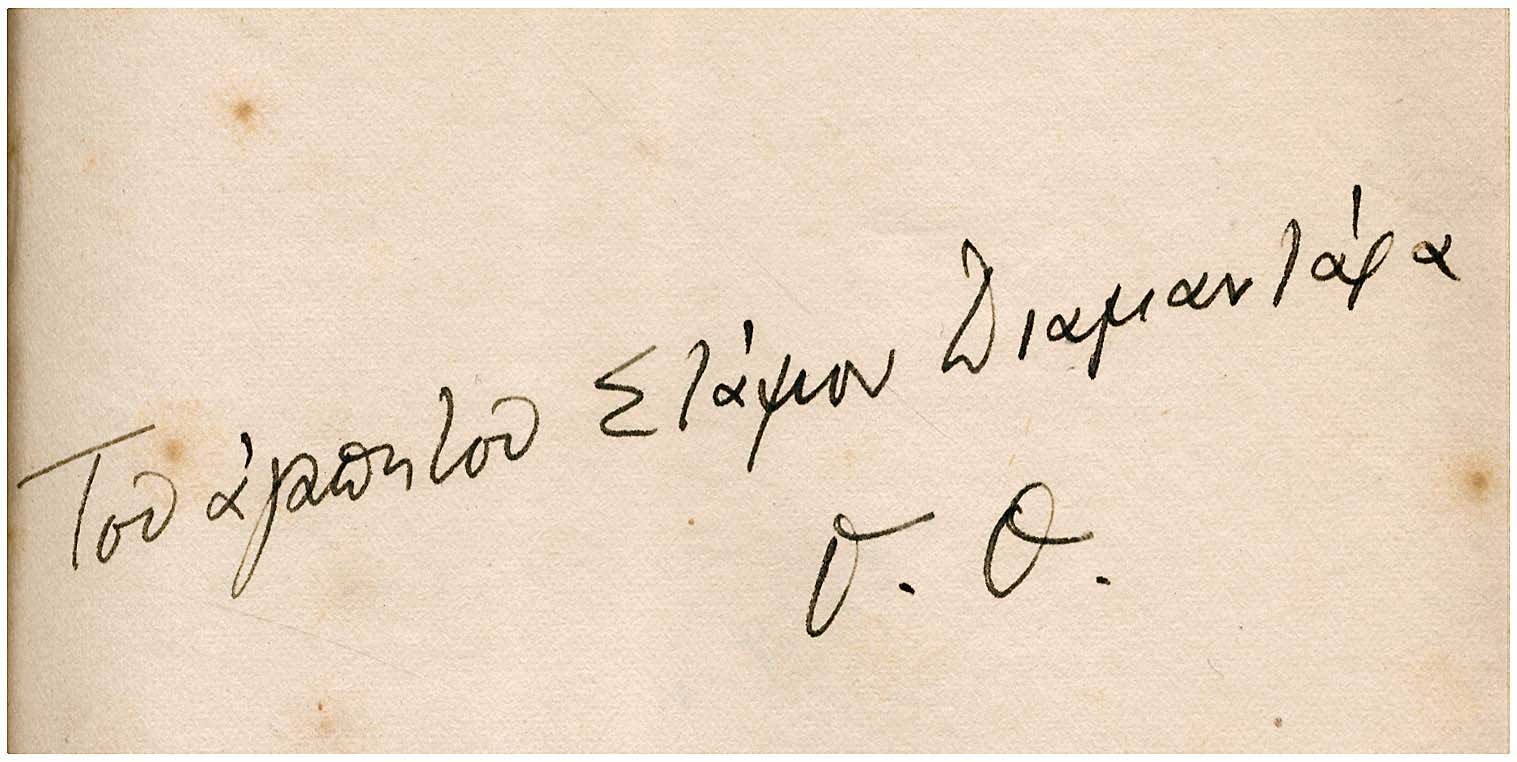 Τοῦ ἀγαπητοῦ Στάμου Διαμαντάρα